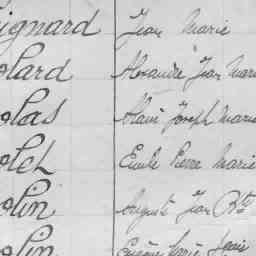 ignard Jean Marie
olard Alexandre Jean Marie
olas Alain Joseph Marie
olet Emile Pierre Marie
olin Auguste Jean Bte
olin Eugène Louis